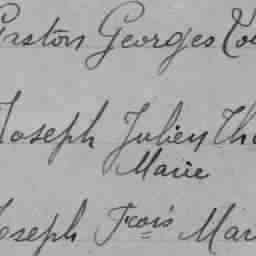 Gaston Georges
Joseph Julien
Marie
Joseph Frois